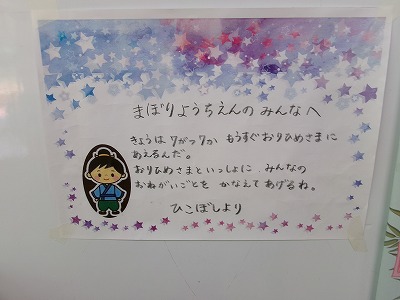 まぼりようちえんの みんなへ
きょうは 7がつ7か もうすぐおりひめさまに
あえるんだ。
おりひめさまといっしょに、みんなの
おねがいごとを かなえてあげるね。
ひこぼしより